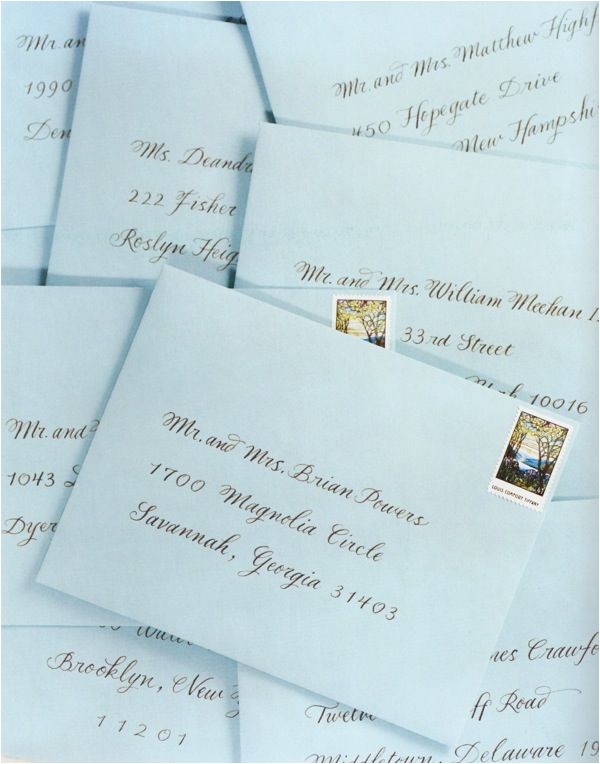 Mr. and
1990
Den
Mr. and Mrs. Matthew Highf
450 Hopegate Drive
New Hampshi
Ms. Deandr
222 Fisher
Roslyn Heig
Mr. and Mrs. William Meehan
33rd Street
10016
Mr. and
1043
Dyer
Mr. and Mrs. Brian Powers
1700 Magnolia Circle
Savannah, Georgia 31403
LOUIS COMFORT TIFFANY
Brooklyn, New
11201
mes Crawfo
Twelve ff Road
Middletown, Delaware 19